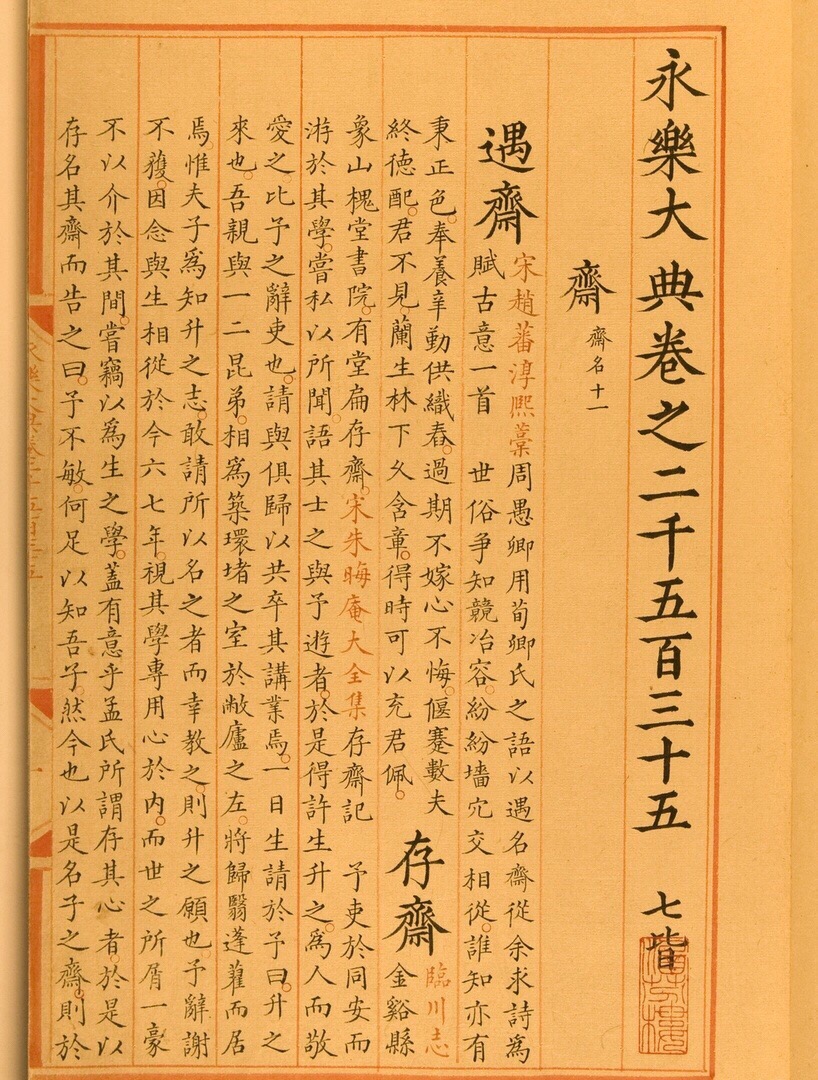 永樂大典卷之二千五百三十五 七皆
齋 齋名十一
遇齋 宋趙蕃淳熙藁周愚卿用荀卿氏之語以遇名齋從余求詩爲
賦古意一首 世俗爭知競冶容。紛紛墻穴交相從。誰知亦有
秉正色。奉養辛勤供織舂。過期不嫁心不悔。偃蹇數夫
終德配。君不見蘭生林下久含章。得時可以充君佩。
存齋 臨川志
金谿縣
象山槐堂書院。有堂扁存齋。宋朱晦庵大全集存齋記 予吏於同安而
游於其學。嘗私以所聞。語其士之與予遊者。於是得許生升之。爲人而敬
愛之。比予之辭吏也。請與俱歸以共卒其講業焉。一日生請於予曰。升之
來也。吾親與一二昆弟。相爲築環堵之室於敝廬之左。將歸翳蓬藋而居
焉。惟夫子爲知升之志。敢請所以名之者而幸教之。則升之願也予辭謝
不獲。因念與生相從於今六七年。視其學專用心於內。而世之所屑一豪
不以介於其間。嘗竊以爲生之學。蓋有意乎孟氏所謂存其心者。於是以
存名其齋而告之曰。予不敏。何足以知吾子。然今也以是名子之齋。則於